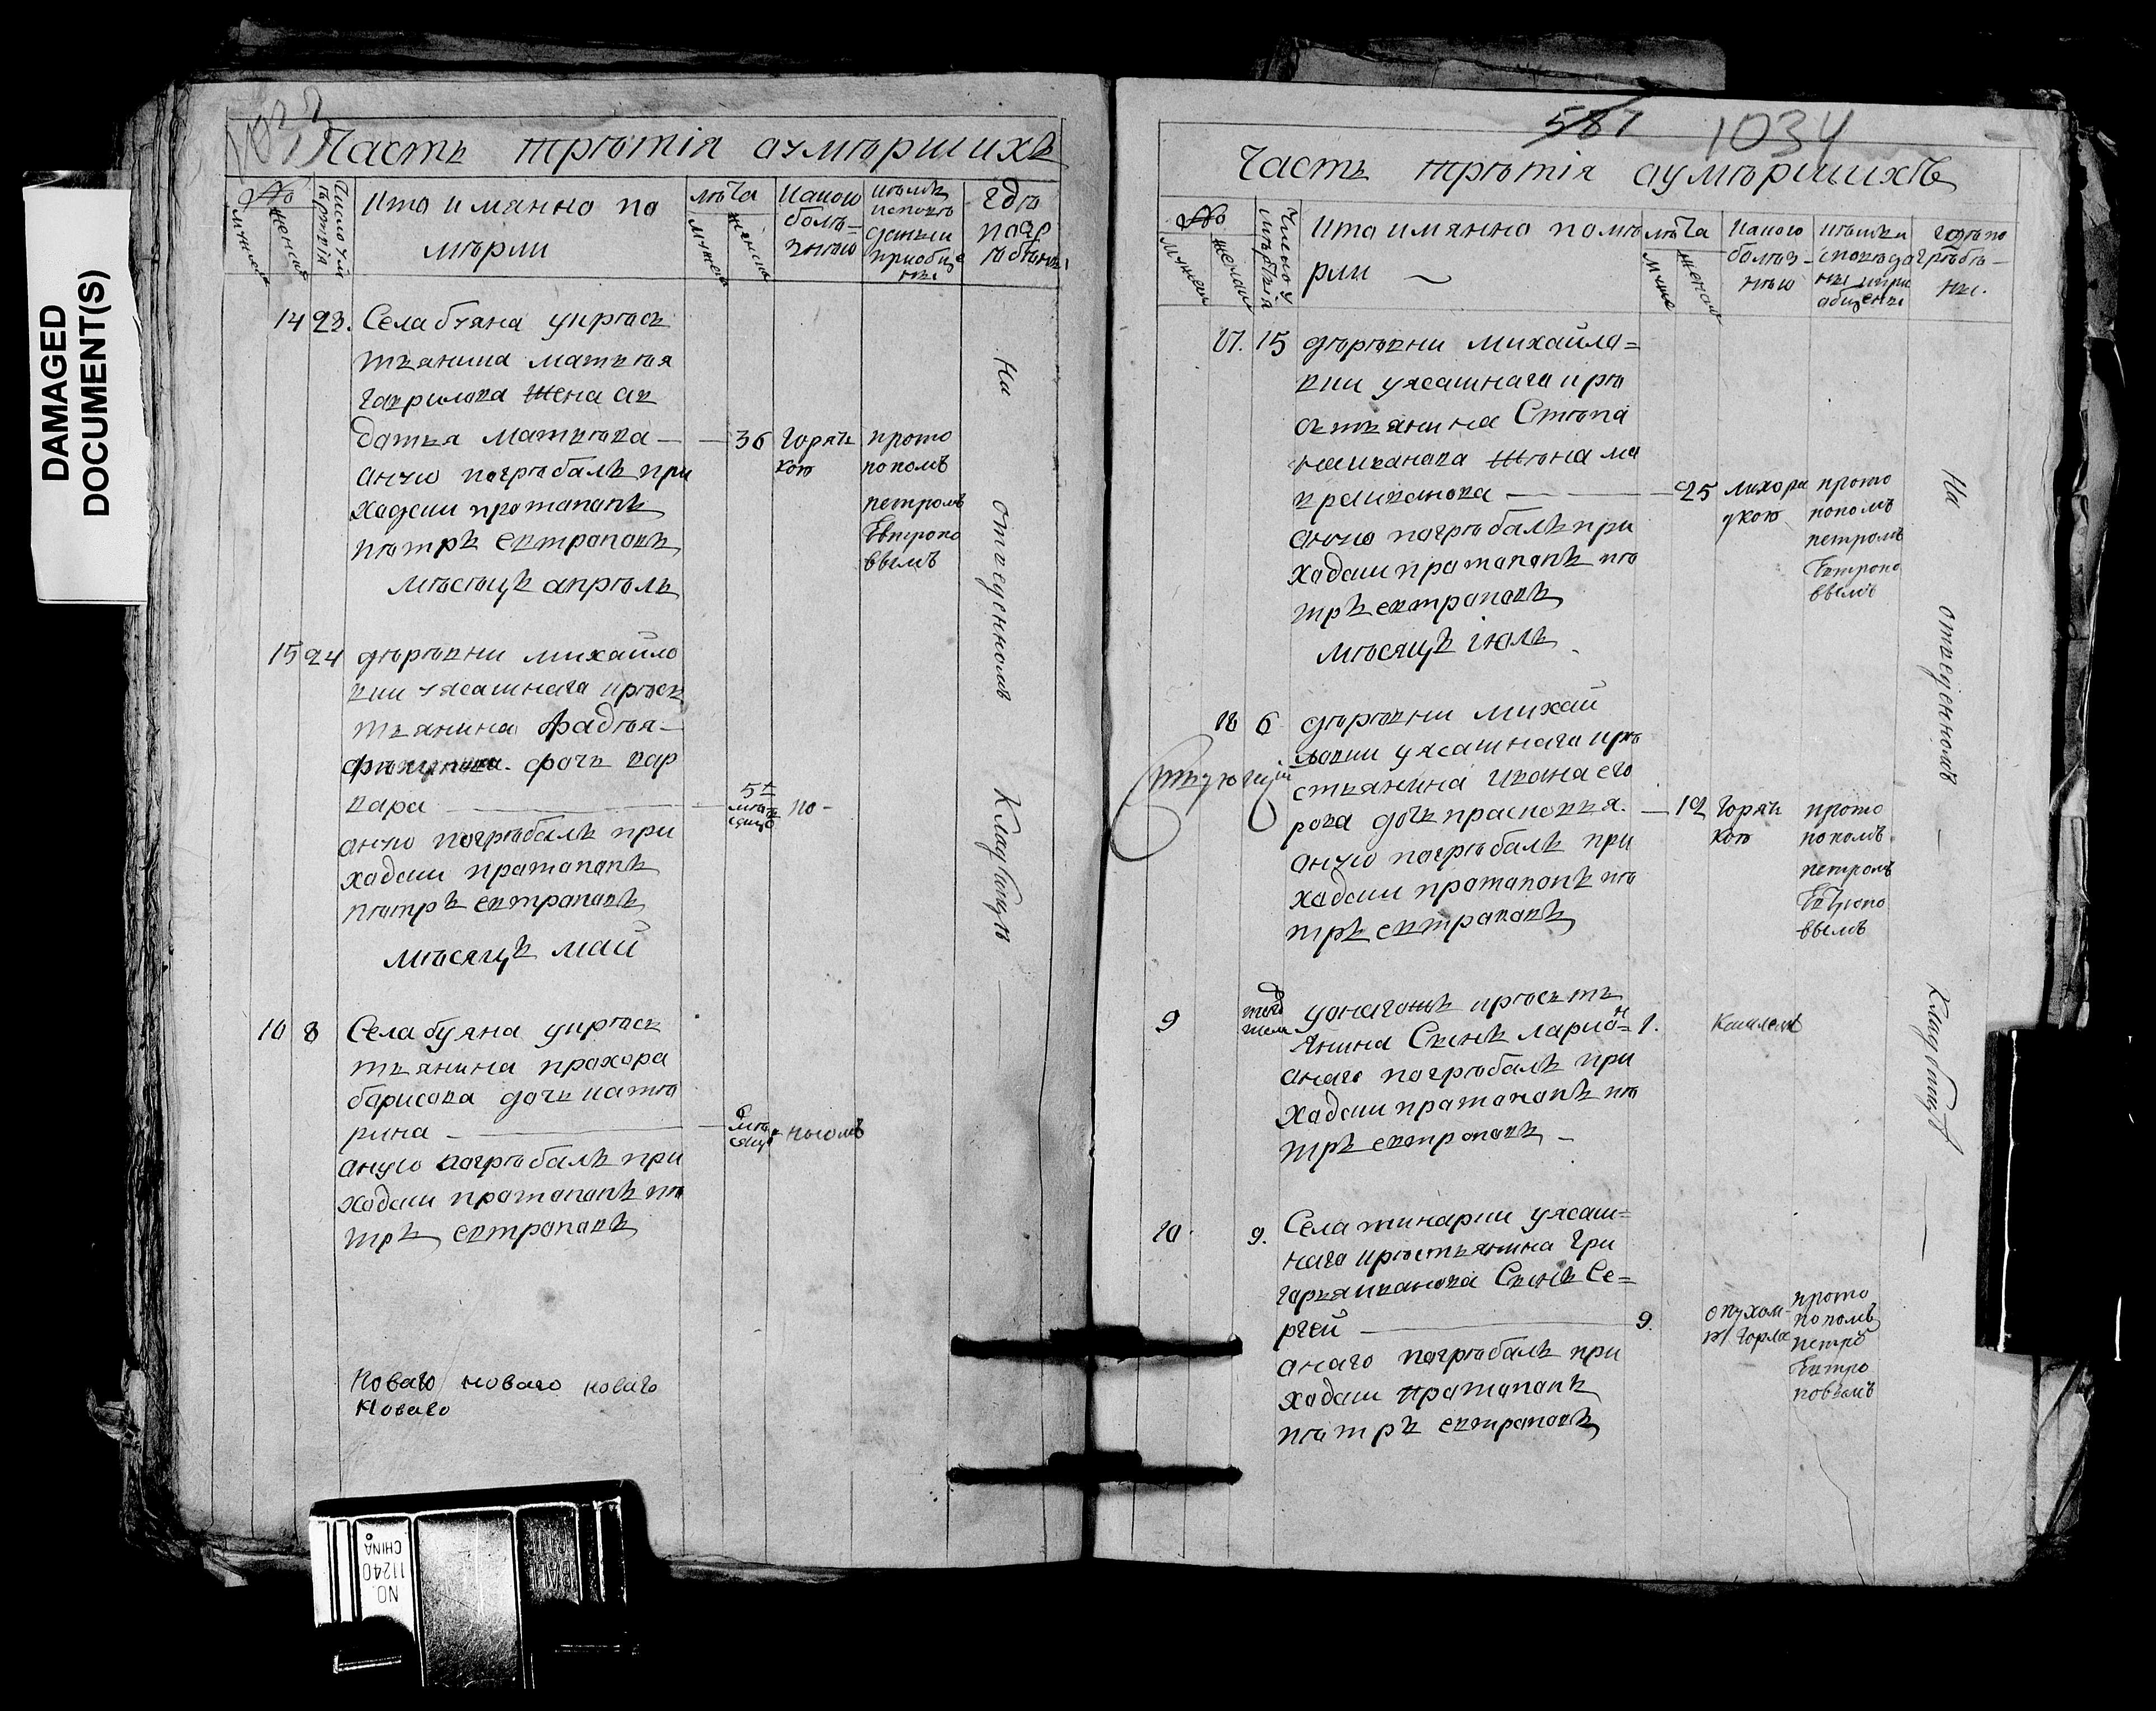 DAMAGED
DOCUMENT(S)
Часть третія аумершихъ
№
мужеск
женска
Число умертвія
Кто имянно по
мерли
лѣта
мужеска
женска
Какою
болѣ=
знію
Кем
исповѣ
данъ и
приобще
ны
Где
погр
ебены
14 23. Села буяна у крес
тьянина матвея
Гаврилова жена ав
дотья матвева — — 36 Горяч
кою
протo
попомъ
петромъ
Евтропо
вымъ
аную погребалъ при
хадски пратапопъ
петръ евтраповъ
месецъ апрель
15 24 деревни михайло
вки уясашнаго крес
тьянина Фадея
дочь вар
вара — 5ть
меся
цовъ
по-
аную погребалъ при
хадски пратапопъ
петръ евтраповъ
месяцъ май
16 8 Села буяна у крес
тьянина прохора
барисова дочь кате
рина — 6
меся
цовъ
аную погребалъ при
хадски пратапопъ пе
тръ евтраповъ
На отведенномъ кладбищѣ
Новаго новаго новаго
Новаго
587 1034
Часть третія аумершихъ
№
мужеск
женска
Число умертвія
Кто имянно поме
рли
лѣта
мужеска
женска
Какого
болѣз-
нью
кем и
споведа
ны и при
абщены
где по
гребе-
ны.
17. 15 деревни михайло=
вки уясашнаго кре
стьянина Степа
на иванова жена ма
вра иванова — — 25 лихора
дкою
прото
попомъ
петромъ
Евтропо
вымъ
аную погребалъ при
хадски пратапопъ пе
тръ евтраповъ
месяцъ іюль
18 6 деревни михай
ловки уясашнаго кре
стьянина ивана его
рова дочь прасковья. — 12 Горяч
кою
прото
попомъ
петромъ
Евтропо
вымъ
аную погребалъ при
хадски пратапопъ пе
тръ евтраповъ
9 тогд
жем у онагожъ кресть
янина Сынъ ларион= 1. Кашлемъ
анаго погребалъ при
хадски пратапопъ пе
тръ евтраповъ —
10. 9. Села тинарки уясаш=
наго крестьянина Гри
горья иванова Сынъ Се=
ргей — 9. опухом
Горла
прото
попомъ
петро
Евтро
повымъ
анаго погребалъ при
хадски пратапопъ
петръ евтраповъ
На отведенномъ — Кладбищѣ —
NO.
11240
CHINA